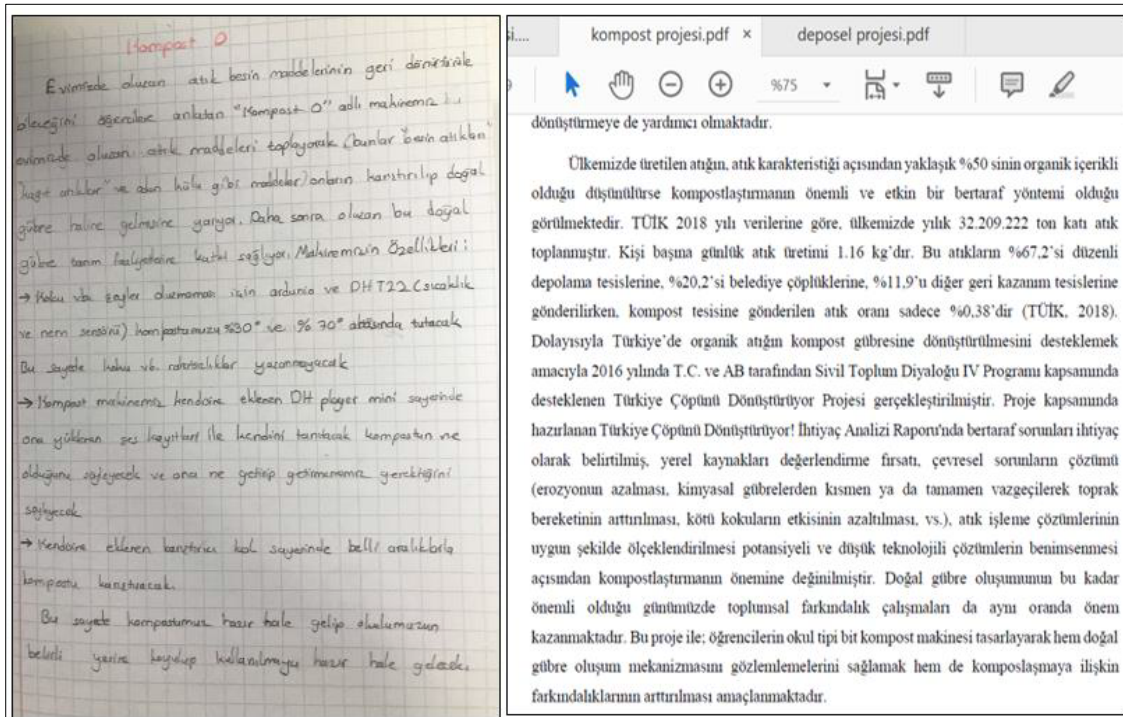 Kompost O
Evimizde oluşan atık besin maddelerinin geri dönüştürüle
bileceğini öğrencilere anlatan "Kompost O" adlı makinemiz bu
evimizde oluşan atık maddeleri toplayarak (bunlar "besin atıkları"
"kağıt atıklar" ve odun külü gibi maddeler) onların karıştırılıp doğal
gübre haline gelmesine yarıyor. Daha sonra oluşan bu doğal
gübre tarım faaliyetlerine katkı sağlıyor. Makinemizin Özellikleri:
→ Koku vb. şeyler oluşmaması için ardunio ve DHT22 (sıcaklık
ve nem sensörü) kompostumuzu %30° ve % 70° arasında tutacak
Bu sayede koku vb. rahatsızlıklar yaşanmayacak
→ Kompost makinemiz kendisine eklenen DH player mini sayesinde
ona yüklenen ses kayıtları ile kendini tanıtacak kompostun ne
olduğunu söyleyecek ve ona ne getirip getirmememiz gerektiğini
söyleyecek
→ Kendisine eklenen karıştırıcı kol sayesinde belli aralıklarla
kompostu karıştıracak.
Bu sayede kompostumuz hazır hale gelip okulumuzun
belirli yerine koyulup kullanılmaya hazır hale gelecek.
si....
kompost projesi.pdf ×
deposel projesi.pdf
%75
dönüştürmeye de yardımcı olmaktadır.
Ülkemizde üretilen atığın, atık karakteristiği açısından yaklaşık %50 sinin organik içerikli
olduğu düşünülürse kompostlaştırmanın önemli ve etkin bir bertaraf yöntemi olduğu
görülmektedir. TÜİK 2018 yılı verilerine göre, ülkemizde yıllık 32.209.222 ton katı atık
toplanmıştır. Kişi başına günlük atık üretimi 1.16 kg'dır. Bu atıkların %67,2'si düzenli
depolama tesislerine, %20,2'si belediye çöplüklerine, %11,9'u diğer geri kazanım tesislerine
gönderilirken, kompost tesisine gönderilen atık oranı sadece %0,38'dir (TÜİK, 2018).
Dolayısıyla Türkiye'de organik atığın kompost gübresine dönüştürülmesini desteklemek
amacıyla 2016 yılında T.C. ve AB tarafından Sivil Toplum Diyaloğu IV Programı kapsamında
desteklenen Türkiye Çöpünü Dönüştürüyor Projesi gerçekleştirilmiştir. Proje kapsamında
hazırlanan Türkiye Çöpünü Dönüştürüyor! İhtiyaç Analizi Raporu'nda bertaraf sorunları ihtiyaç
olarak belirtilmiş, yerel kaynakları değerlendirme fırsatı, çevresel sorunların çözümü
(erozyonun azalması, kimyasal gübrelerden kısmen ya da tamamen vazgeçilerek toprak
bereketinin arttırılması, kötü kokuların etkisinin azaltılması, vs.), atık işleme çözümlerinin
uygun şekilde ölçeklendirilmesi potansiyeli ve düşük teknolojili çözümlerin benimsenmesi
açısından kompostlaştırmanın önemine değinilmiştir. Doğal gübre oluşumunun bu kadar
önemli olduğu günümüzde toplumsal farkındalık çalışmaları da aynı oranda önem
kazanmaktadır. Bu proje ile; öğrencilerin okul tipi bit kompost makinesi tasarlayarak hem doğal
gübre oluşum mekanizmasını gözlemlemelerini sağlamak hem de komposlaşmaya ilişkin
farkındalıklarının arttırılması amaçlanmaktadır.